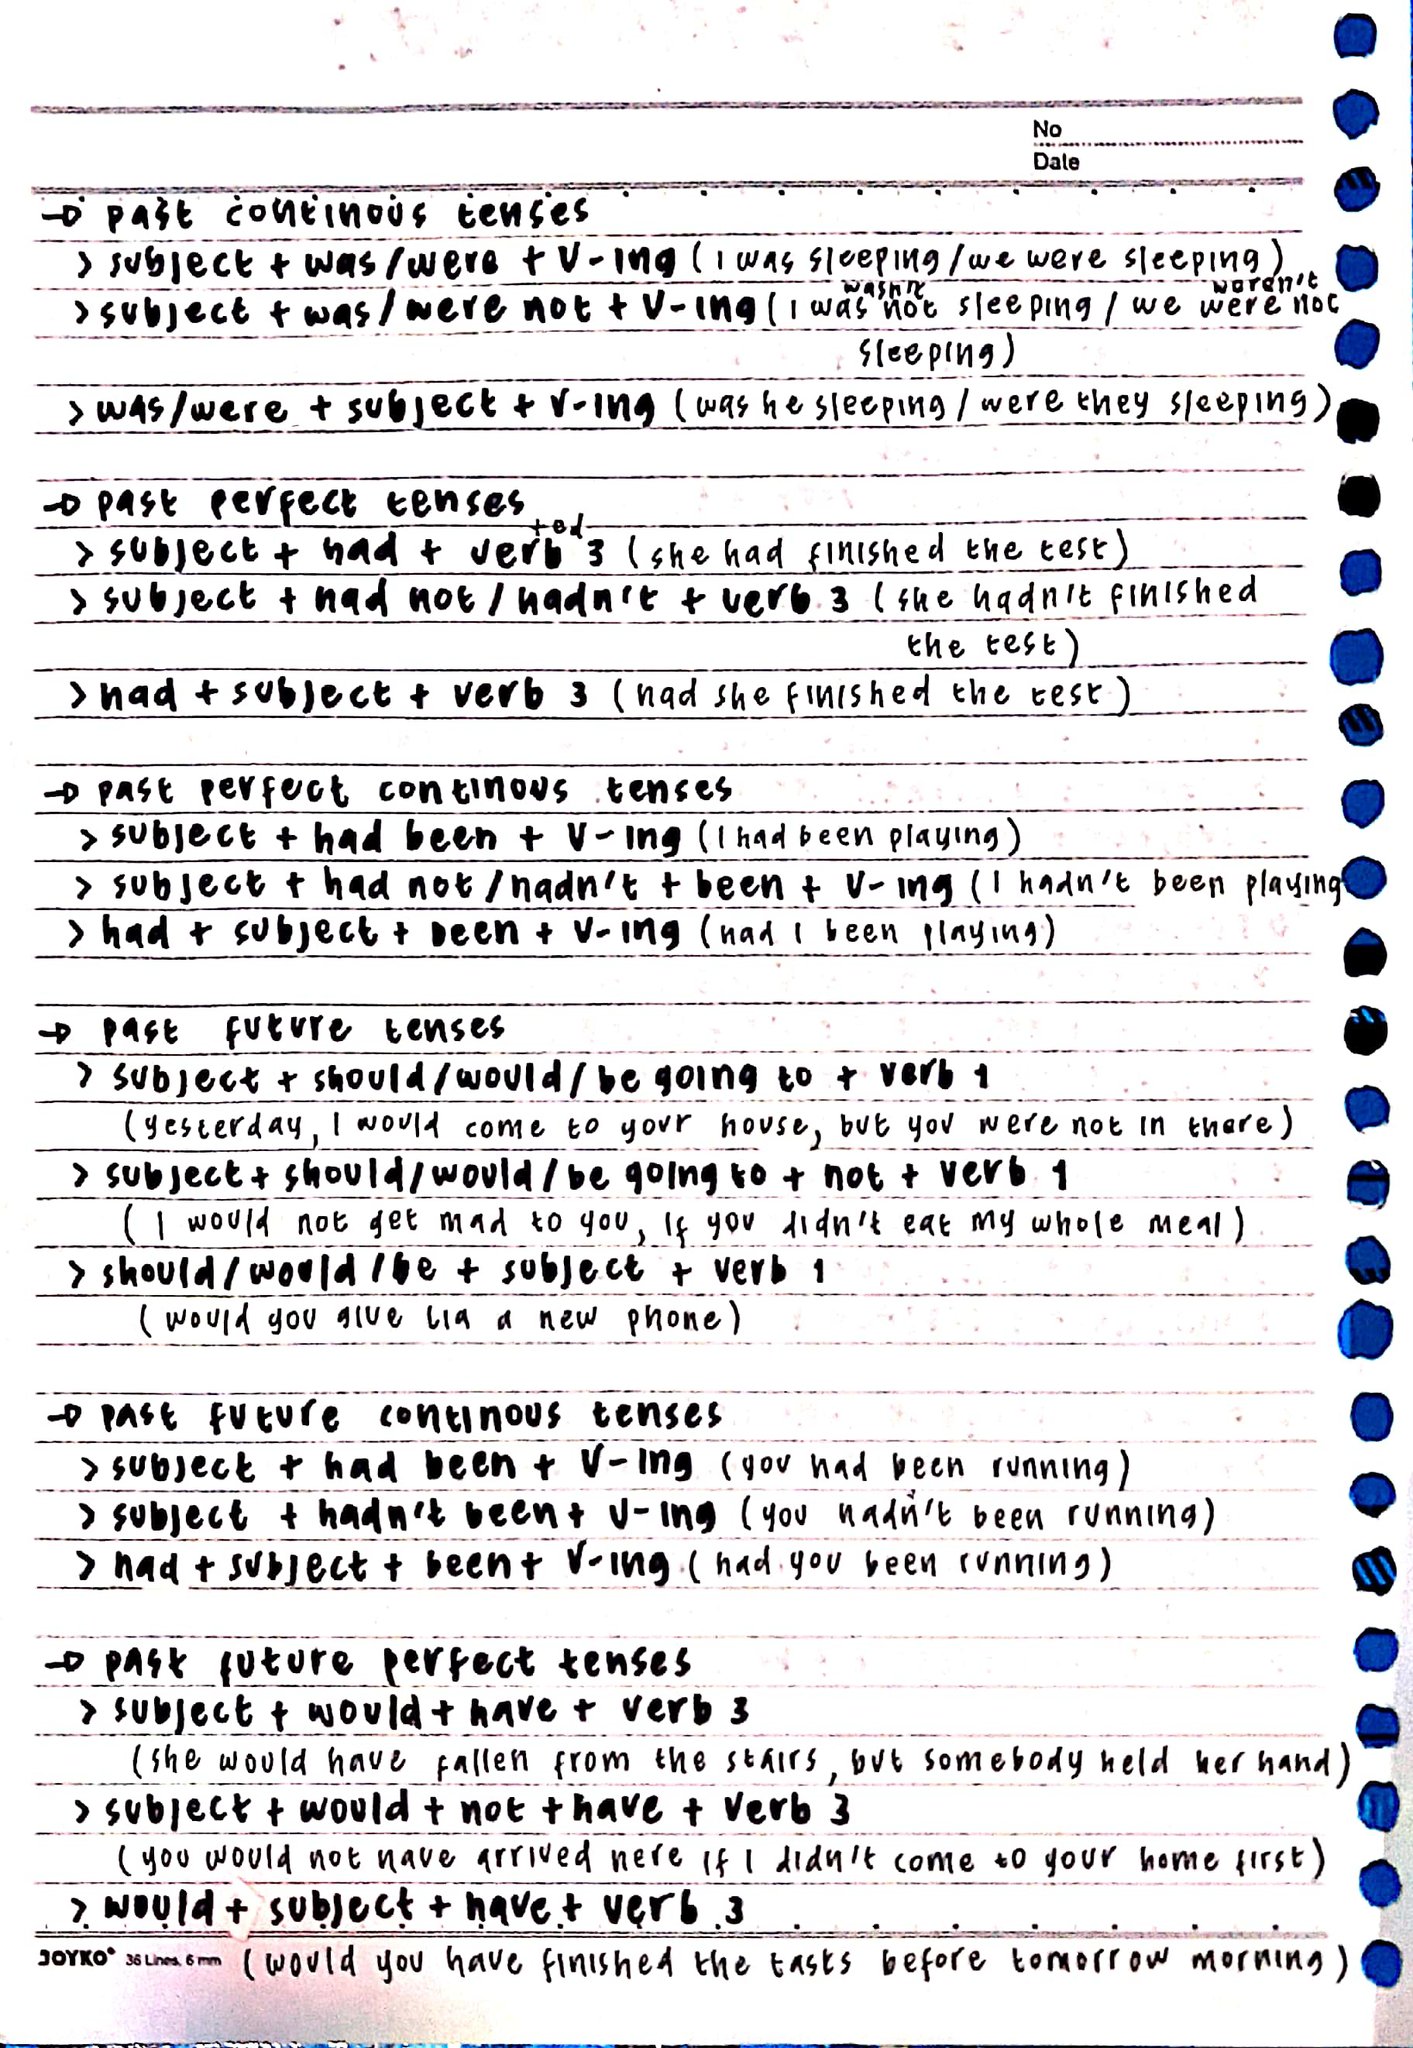 No
Date
→ past continous tenses
> subject + was/were + V-ing (I was sleeping/we were sleeping)
wasn't weren't
> subject + was/were not + V-ing (I was not sleeping / we were not
sleeping)
> was/were + subject + V-ing (was he sleeping/were they sleeping)
→ past perfect tenses
+ed
> subject + had + verb 3 (she had finished the test)
> subject + had not/hadn't + verb 3 (she hadn't finished
the test)
> had + subject + verb 3 (had she finished the test)
→ past perfect continous tenses
> subject + had been + V-ing (I had been playing)
> subject + had not/hadn't + been + V-ing (I hadn't been playing
> had + subject + been + V-ing (had I been playing)
→ past future tenses
> subject + should/would/be going to + verb 1
(yesterday, I would come to your house, but you were not in there)
> subject + should/would/be going to + not + verb 1
(I would not get mad to you, if you didn't eat my whole meal)
> should/would/be + subject + verb 1
(would you give lia a new phone)
→ past future continous tenses
> subject + had been + V-ing (you had been running)
> subject + hadn't been + V-ing (you hadn't been running)
> had + subject + been + V-ing (had you been running)
→ past future perfect tenses
> subject + would + have + verb 3
(she would have fallen from the stairs, but somebody held her hand)
> subject + would + not + have + verb 3
(you would not have arrived here if I didn't come to your home first)
> would + subject + have + verb 3
JOYKO® 36 Lines, 6 mm (would you have finished the tasks before tomorrow morning)